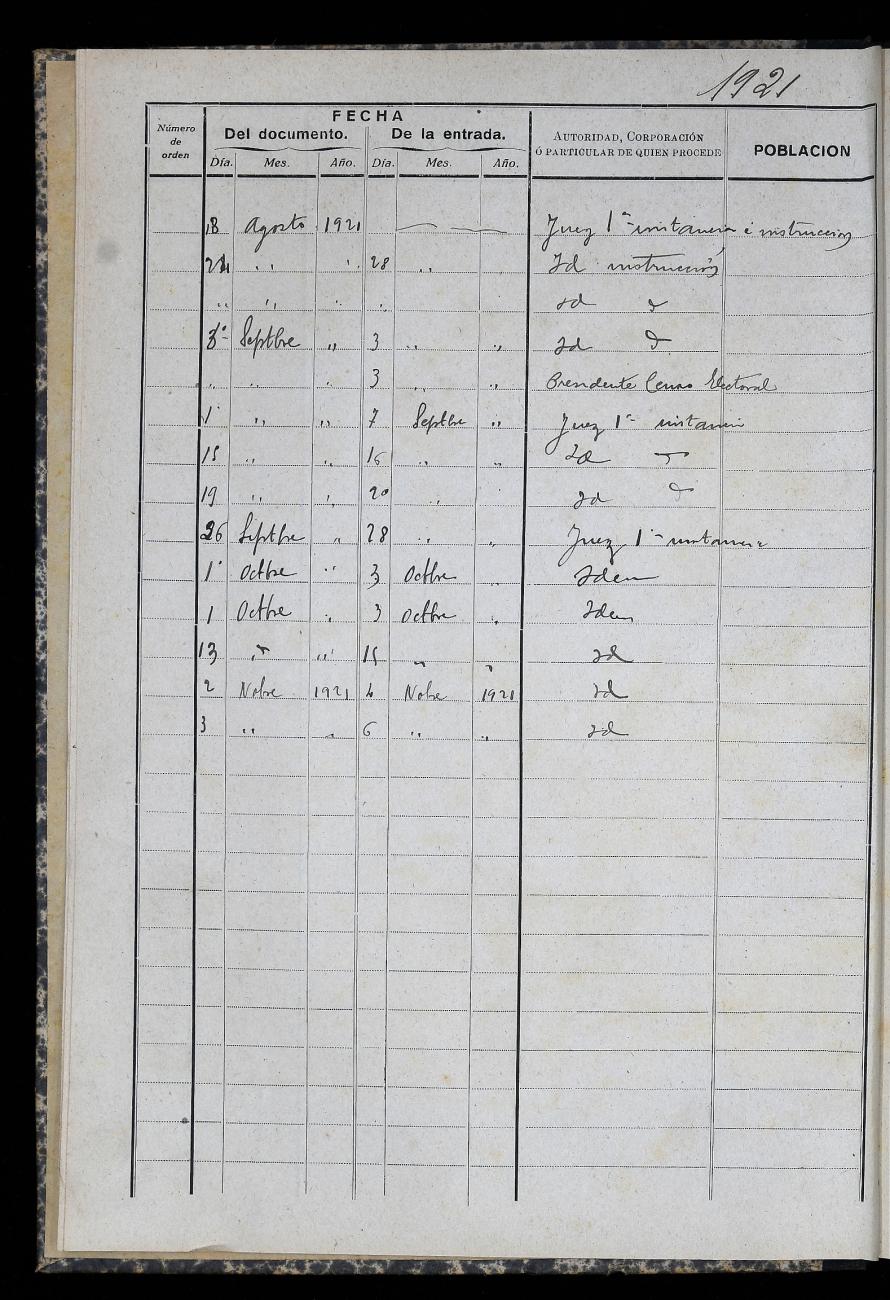 1921
FECHA
Número de orden Del documento. De la entrada. AUTORIDAD, CORPORACIÓN Ó PARTICULAR DE QUIEN PROCEDE POBLACION
Día. Mes. Año. Día. Mes. Año.
18 Agosto 1921 — — Juez 1ª instancia é instruccion
24 " " 28 " Id instrucción
" " " " id "
3º Septbre " 3 " " Id "
" " " 3 " " Presidente Censo Electoral
1º " " 7 Septbre " Juez 1ª instancia
15 " " 16 " " Id "
19 " " 20 " " id "
26 Septbre " 28 " " Juez 1ª instancia
1º Octbre " 3 Octbre " Idem
1 Octbre " 3 Octbre " Idem
13 " " 15 " " id
2 Nobre 1921 4 Nobre 1921 id
3 " " 6 " " id